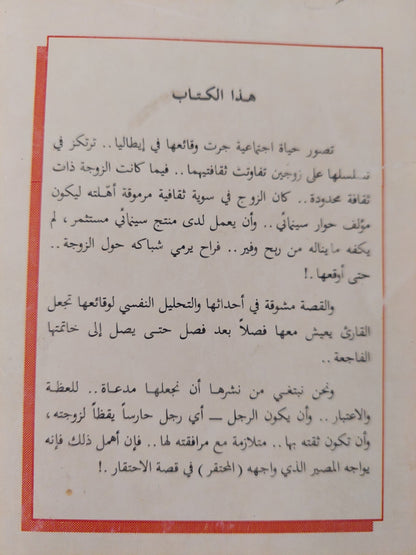 هذا الكتاب
تصور حياة اجتماعية جرت وقائعها في إيطاليا .. ترتكز في
تسلسلها على زوجين تفاوتت ثقافتيهما .. فيما كانت الزوجة ذات
ثقافة محدودة .. كان الزوج في سوية ثقافية مرموقة أهّلته ليكون
مؤلف حوار سينمائي .. وأن يعمل لدى منتج سينمائي مستثمر ، لم
يكفه ما يناله من ربح وفير .. فراح يرمي شباكه حول الزوجة ..
حتى أوقعها .!
والقصة مشوقة في أحداثها والتحليل النفسي لوقائعها تجعل
القارئ يعيش معها فصلاً بعد فصل حتى يصل إلى خاتمتها
الفاجعة ..
ونحن نبتغي من نشرها أن نجعلها مدعاة .. للعظة
والاعتبار .. وأن يكون الرجل — أي رجل حارساً يقظاً لزوجته ،
وأن تكون ثقته بها .. متلازمة مع مرافقته لها .. فإن أهمل ذلك فإنه
يواجه المصير الذي واجهه ( المحتقر ) في قصة الاحتقار .!